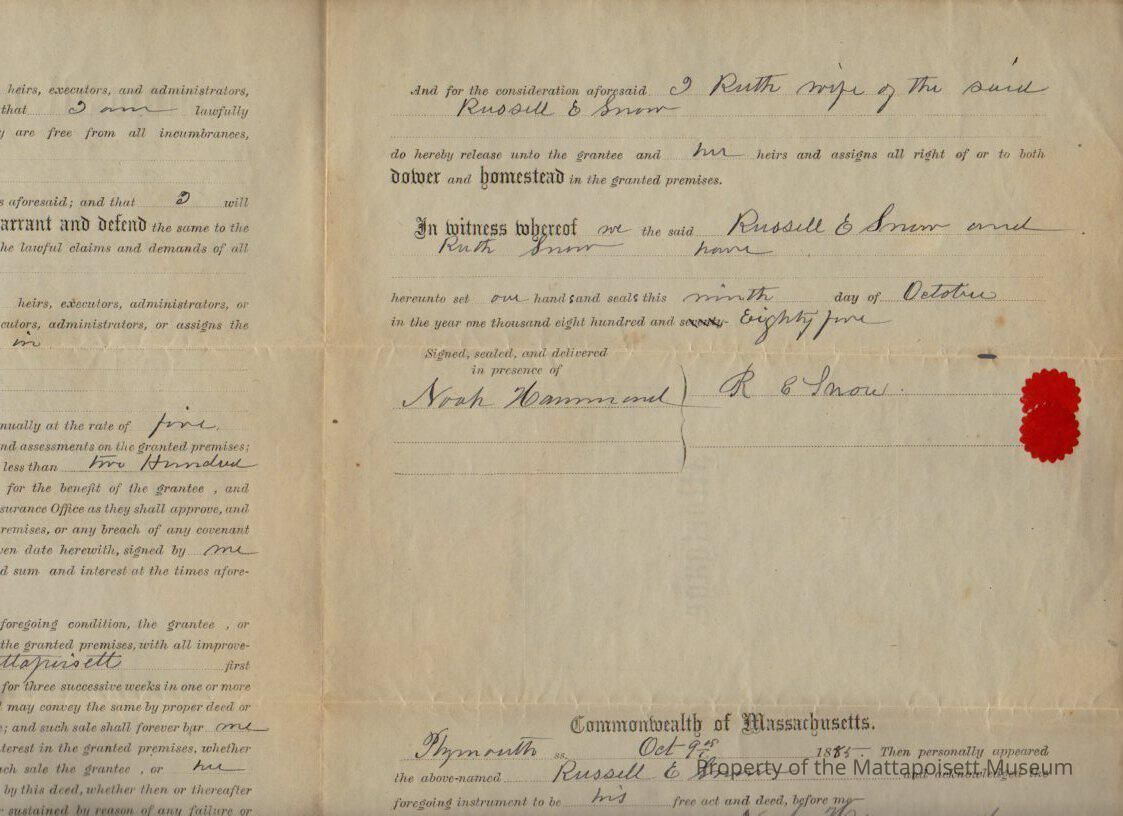 heirs, executors, and administrators,
that I am lawfully
are free from all incumbrances,
s aforesaid; and that I will
arrant and defend the same to the
he lawful claims and demands of all
heirs, executors, administrators, or
cutors, administrators, or assigns the
in
nually at the rate of five
nd assessments on the granted premises;
less than two Hundred
for the benefit of the grantee , and
surance Office as they shall approve, and
remises, or any breach of any covenant
ven date herewith, signed by me
d sum and interest at the times afore-
foregoing condition, the grantee , or
the granted premises, with all improve-
ttapoisett first
for three successive weeks in one or more
may convey the same by proper deed or
; and such sale shall forever bar me
terest in the granted premises, whether
ch sale the grantee , or her
by this deed, whether then or thereafter
r sustained by reason of any failure or
And for the consideration aforesaid I Ruth wife of the said
Russell E Snow
do hereby release unto the grantee and her heirs and assigns all right of or to both
dower and homestead in the granted premises.
In witness whereof we the said Russell E Snow and
Ruth Snow have
hereunto set our hands and seals this ninth day of October
in the year one thousand eight hundred and seventy- Eighty five
Signed, sealed, and delivered
in presence of
Noah Hammond R E Snow.
Commonwealth of Massachusetts.
Plymouth ss. Oct 9th 1885. Then personally appeared
the above-named Russell E Snow and acknowledged the
Property of the Mattapoisett Museum
foregoing instrument to be his free act and deed, before me